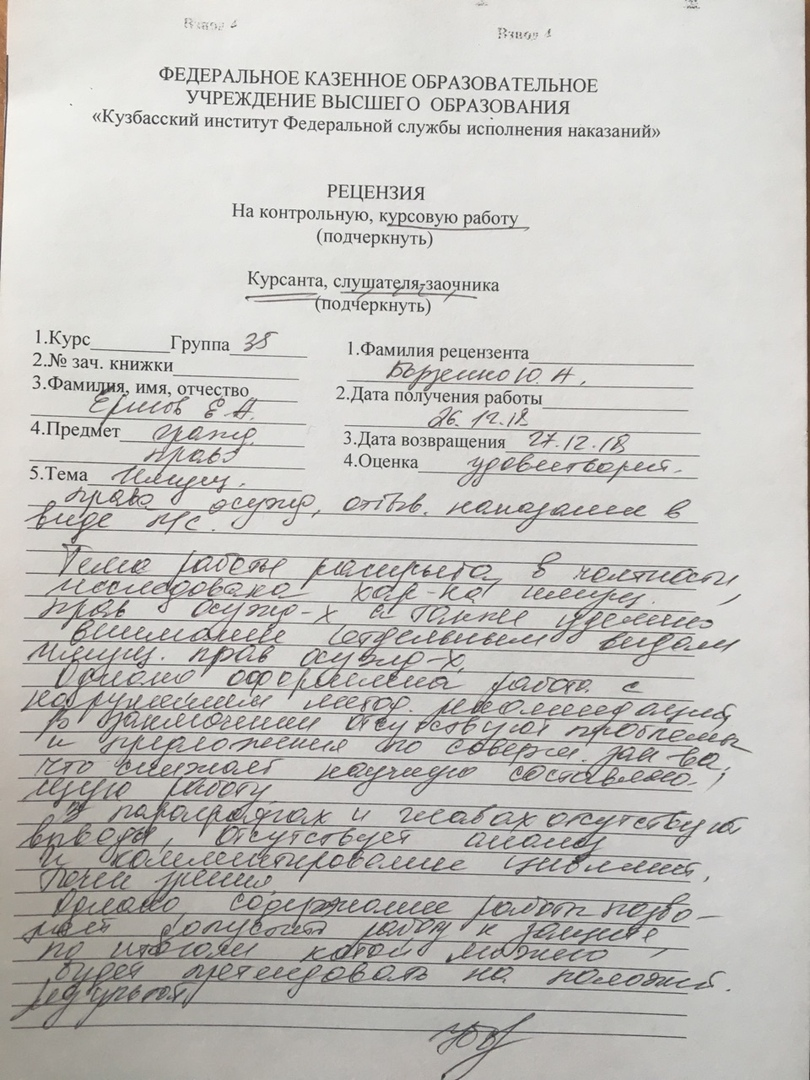 Взвод 4
Взвод 4
ФЕДЕРАЛЬНОЕ КАЗЕННОЕ ОБРАЗОВАТЕЛЬНОЕ
УЧРЕЖДЕНИЕ ВЫСШЕГО ОБРАЗОВАНИЯ
«Кузбасский институт Федеральной службы исполнения наказаний»
РЕЦЕНЗИЯ
На контрольную, курсовую работу
(подчеркнуть)
Курсанта, слушателя-заочника
(подчеркнуть)
1.Курс Группа 38
2.№ зач. книжки
3.Фамилия, имя, отчество
Ершов Е.А.
4.Предмет гражд.
право
5.Тема Имущ.
1.Фамилия рецензента
Борзенко Ю.А.
2.Дата получения работы
26.12.18
3.Дата возвращения 27.12.18
4.Оценка удовлетворит.
права осужд, отбыв. наказание в
виде л/с.
Тема работы раскрыта, в частности,
исследована хар-ка имущ.
прав осужд-х, а также уделено
внимание отдельным видам
имущ. прав осужд-х.
Однако оформлена работа с
нарушением метод. рекомендаций,
В заключении отсутствуют проблемы
и предложения по соверш. зак-ва,
что снижает научную составляю-
щую работу
В параграфах и главах отсутствуют
выводы, отсутствует анализ
и комментирование цивилист.
точек зрения.
Однако, содержание работы позво-
ляет допустить работу к защите,
по итогам которой можно
будет претендовать на положит.
результат